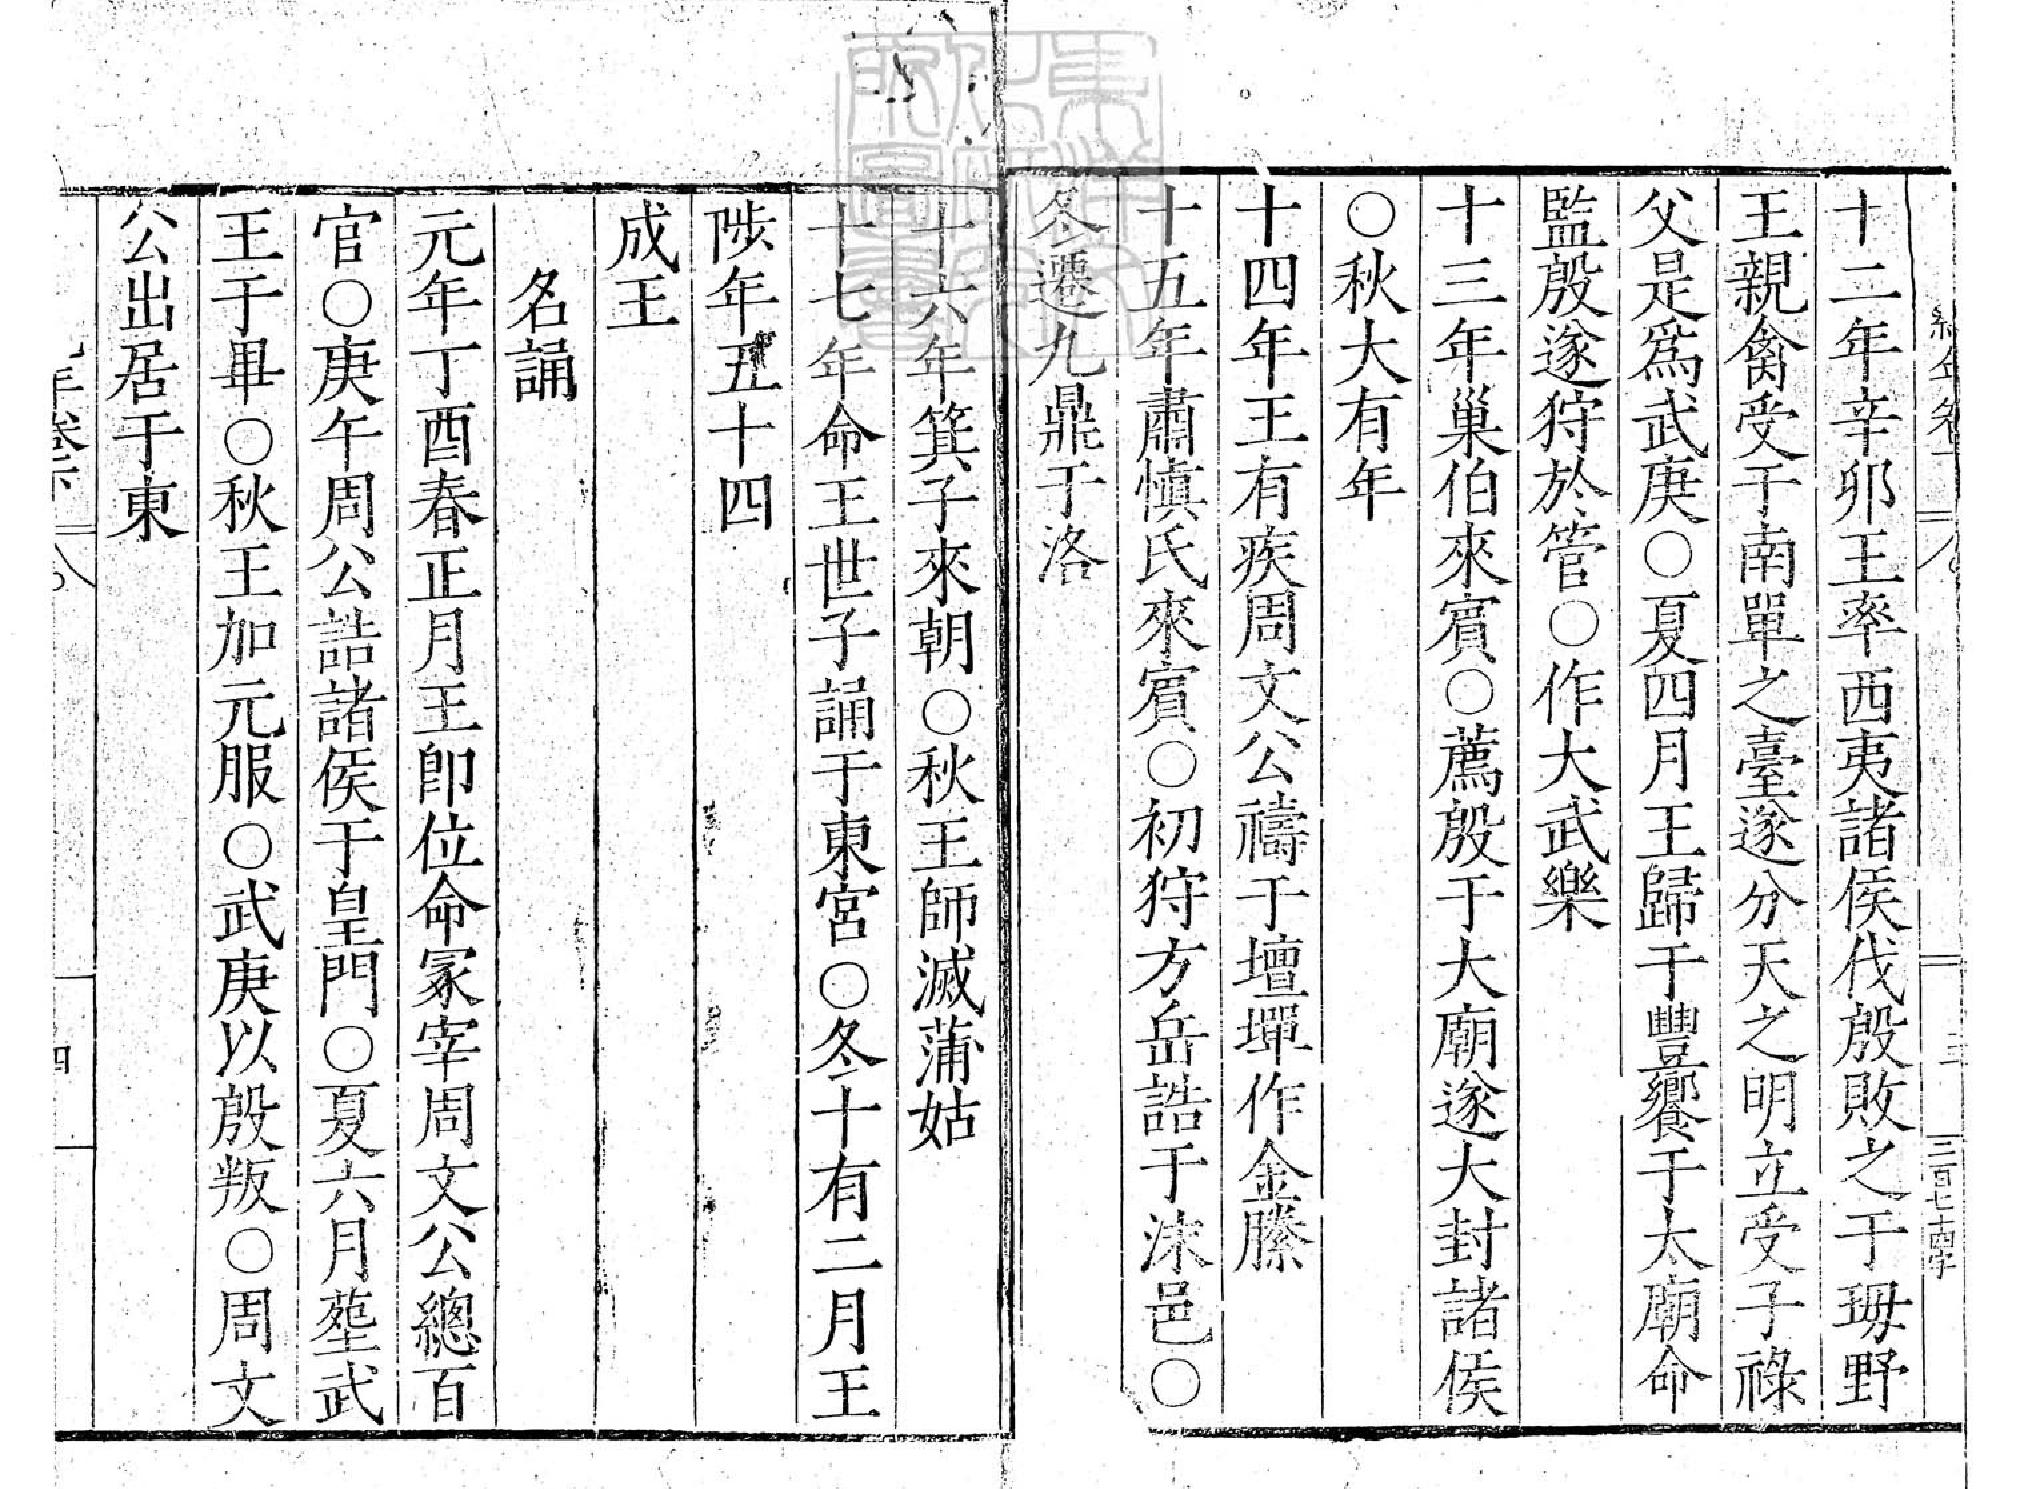 十二年辛卯王率西夷諸侯伐殷敗之于坶野
王親禽受于南單之臺遂分天之明立受子祿
父是爲武庚○夏四月王歸于豐饗于太廟命
監殷遂狩於管○作大武樂
十三年巢伯來賓○薦殷于大廟遂大封諸侯
○秋大有年
十四年王有疾周文公禱于壇墠作金縢
十五年肅愼氏來賓○初狩方岳誥于沬邑○
冬遷九鼎于洛
十六年箕子來朝○秋王師滅蒲姑
十七年命王世子誦于東宮○冬十有二月王
陟年五十四
成王
名誦
元年丁酉春正月王卽位命冢宰周文公總百
官○庚午周公誥諸侯于皇門○夏六月塟武
王于畢○秋王加元服○武庚以殷叛○周文
公出居于東
四